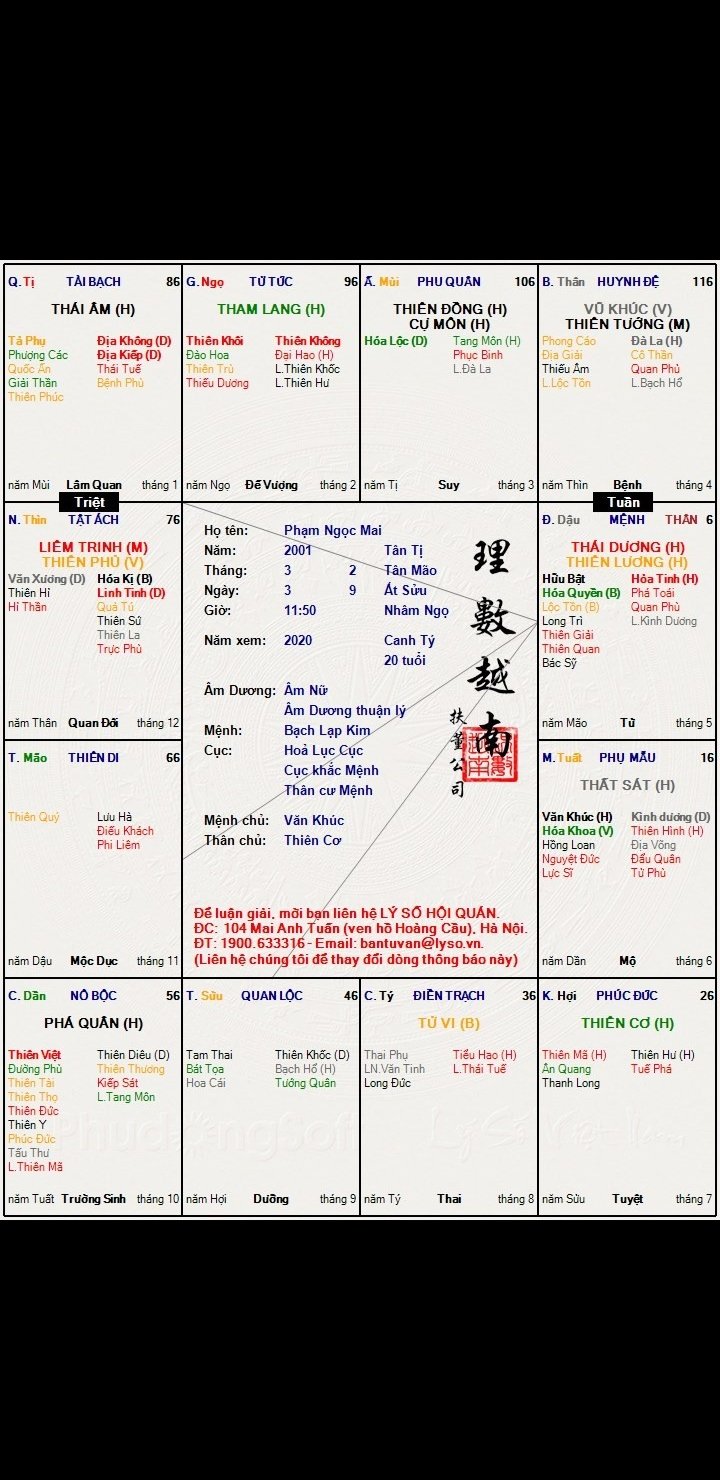 Q. Tị TÀI BẠCH 86
THÁI ÂM (H)
Tả Phụ Địa Không (D)
Phượng Các Địa Kiếp (D)
Quốc Ấn Thái Tuế
Giải Thần Bệnh Phù
Thiên Phúc
năm Mùi Lâm Quan tháng 1
G. Ngọ TỬ TỨC 96
THAM LANG (H)
Thiên Khôi Thiên Không
Đào Hoa Đại Hao (H)
Thiên Trù L.Thiên Khốc
Thiếu Dương L.Thiên Hư
năm Ngọ Đế Vượng tháng 2
Ấ. Mùi PHU QUÂN 106
THIÊN ĐỒNG (H)
CỰ MÔN (H)
Hóa Lộc (D) Tang Môn (H)
Phục Binh
L.Đà La
năm Tị Suy tháng 3
B. Thân HUYNH ĐỆ 116
VŨ KHÚC (V)
THIÊN TƯỚNG (M)
Phong Cáo Đà La (H)
Địa Giải Cô Thần
Thiếu Âm Quan Phủ
L.Lộc Tồn L.Bạch Hổ
năm Thìn Bệnh tháng 4
Triệt
Tuần
N. Thìn TẬT ÁCH 76
LIÊM TRINH (M)
THIÊN PHỦ (V)
Văn Xương (D) Hóa Kị (B)
Thiên Hỉ Linh Tinh (D)
Hỉ Thần Quả Tú
Thiên Sứ
Thiên La
Trực Phù
năm Thân Quan Đới tháng 12
Họ tên: Phạm Ngọc Mai
Năm: 2001 Tân Tị
Tháng: 3 2 Tân Mão
Ngày: 3 9 Ất Sửu
Giờ: 11:50 Nhâm Ngọ
Năm xem: 2020 Canh Tý
20 tuổi
Âm Dương: Âm Nữ
Âm Dương thuận lý
Mệnh: Bạch Lạp Kim
Cục: Hoả Lục Cục
Cục khắc Mệnh
Thân cư Mệnh
Mệnh chủ: Văn Khúc
Thân chủ: Thiên Cơ
理數越南
扶董公司
Để luận giải, mời bạn liên hệ LÝ SỐ HỘI QUÁN.
ĐC: 104 Mai Anh Tuấn (ven hồ Hoàng Cầu), Hà Nội.
ĐT: 1900.633316 - Email: bantuvan@lyso.vn.
(Liên hệ chúng tôi để thay đổi dòng thông báo này)
Đ. Dậu MỆNH THÂN 6
THÁI DƯƠNG (H)
THIÊN LƯƠNG (H)
Hữu Bật Hỏa Tinh (H)
Hóa Quyền (B) Phá Toái
Lộc Tồn (B) Quan Phù
Long Trì L.Kình Dương
Thiên Giải
Thiên Quan
Bác Sỹ
năm Mão Tử tháng 5
T. Mão THIÊN DI 66
Thiên Quý Lưu Hà
Điếu Khách
Phi Liêm
năm Dậu Mộc Dục tháng 11
M. Tuất PHỤ MẪU 16
THẤT SÁT (H)
Văn Khúc (H) Kình dương (D)
Hóa Khoa (V) Thiên Hình (H)
Hồng Loan Địa Võng
Nguyệt Đức Đẩu Quân
Lực Sĩ Tử Phù
năm Dần Mộ tháng 6
C. Dần NÔ BỘC 56
PHÁ QUÂN (H)
Thiên Việt Thiên Diêu (D)
Đường Phù Thiên Thương
Thiên Tài Kiếp Sát
Thiên Thọ L.Tang Môn
Thiên Đức
Thiên Y
Phúc Đức
Tấu Thư
L.Thiên Mã
năm Tuất Trường Sinh tháng 10
T. Sửu QUAN LỘC 46
Tam Thai Thiên Khốc (D)
Bát Tọa Bạch Hổ (H)
Hoa Cái Tướng Quân
năm Hợi Dưỡng tháng 9
C. Tý ĐIỀN TRẠCH 36
TỬ VI (B)
Thai Phụ Tiểu Hao (H)
LN.Văn Tinh L.Thái Tuế
Long Đức
năm Tý Thai tháng 8
K. Hợi PHÚC ĐỨC 26
THIÊN CƠ (H)
Thiên Mã (H) Thiên Hư (H)
Ân Quang Tuế Phá
Thanh Long
năm Sửu Tuyệt tháng 7